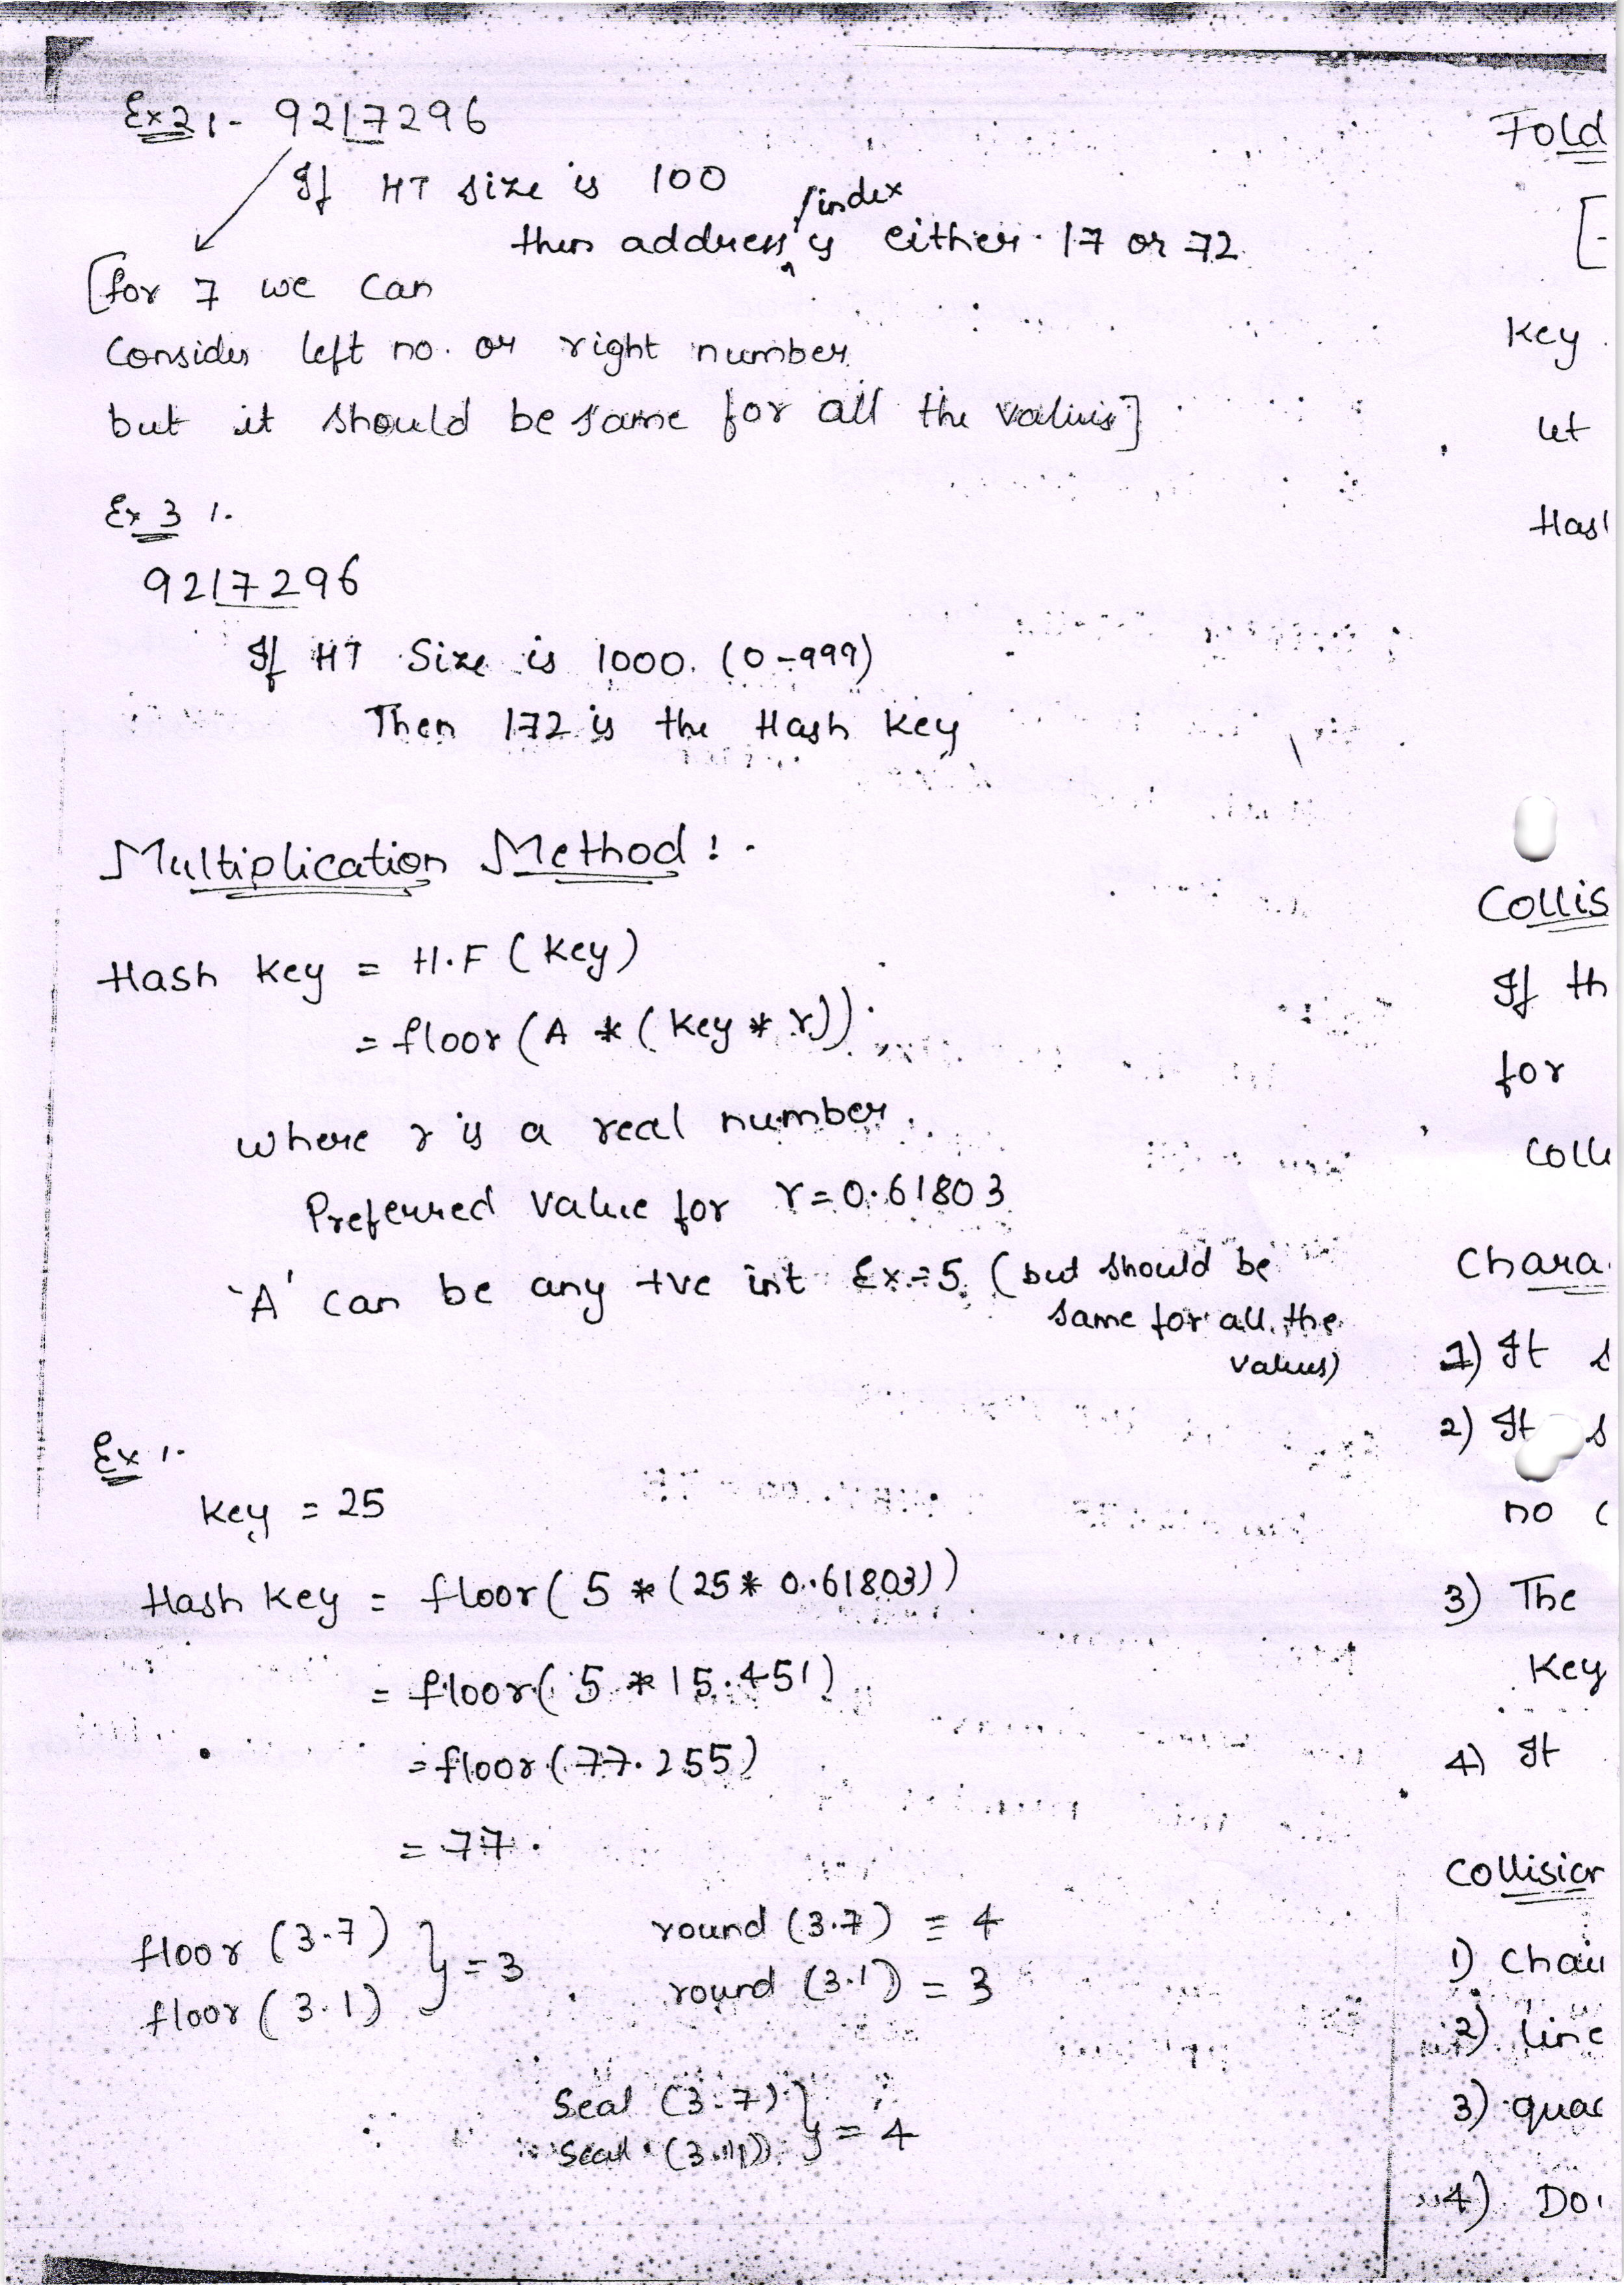 Ex2:- 9217296
If HT size is 100
/index
then address is either 17 or 72
[for 7 we can
Consider left no. or right number
but it should be same for all the values]
Ex 3 :-
9217296
If HT Size is 1000. (0-999)
Then 172 is the Hash key
Multiplication Method :-
Hash key = H.F (key)
= floor (A * (key * r)).
where r is a real number.
Preferred value for r=0.61803
'A' can be any +ve int Ex=5. (but should be
same for all the
values)
Ex :-
key = 25
Hash key = floor( 5 * (25 * 0.61803))
= floor( 5 * 15.451)
= floor (77.255)
= 77.
floor (3.7)
floor (3.1) } = 3
round (3.7) = 4
round (3.1) = 3
Seal (3.7)
Seal (3.1) } = 4
Fold
[-
key
let
Hash
Collis
If th
for
Colli
Chara
1) It s
2) It s
no c
3) The
Key
4) It
Collision
1) Chai
2) line
3) quad
4) Do